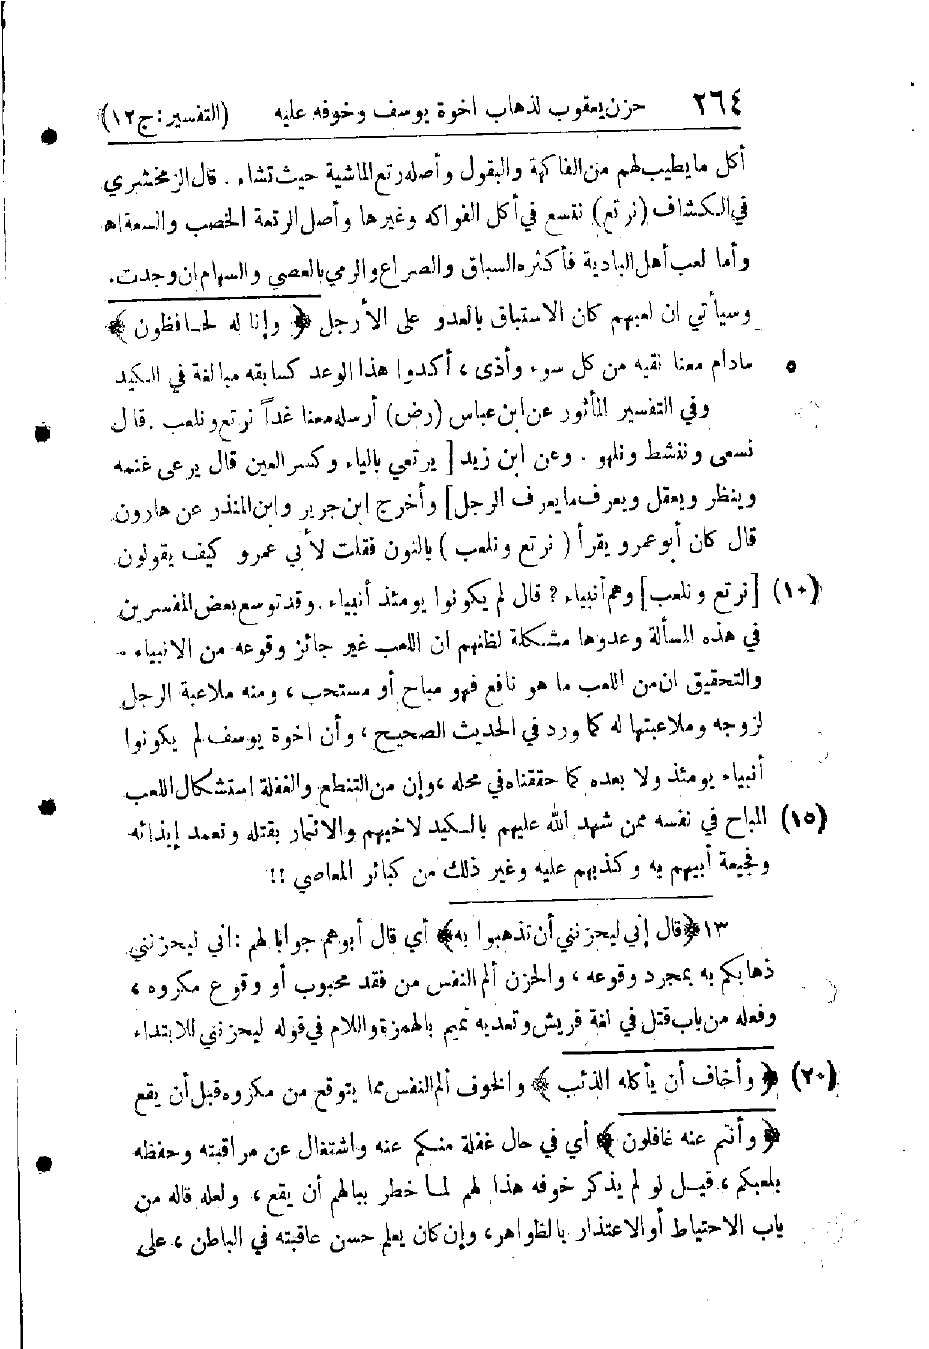 ٢٦٤ حزن يعقوب لذهاب اخوة يوسف وخوفه عليه (التفسير: ج ١٢)
أكل ما يطيب لهم من الفاكهة والبقول وأصله رتع الماشية حيث تشاء. قال الزمخشري
في الكشاف (نرتع) نتسع في أكل الفواكه وغيرها وأصل الرتعة الخصب والسعة اه
وأما لعب أهل البادية فأكثره السباق والصراع والرمي بالعصي والسهام ان وجدت.
وسيأتي ان لعبهم كان الاستباق بالعدو على الأرجل ﴿ وإنا له لحافظون ﴾
٥ مادام معنا نقيه من كل سوء وأذى، أكدوا هذا الوعد كسابقه مبالغة في الكيد
وفي التفسير المأثور عن ابن عباس (رض) أرسله معنا غداً نرتع ونلعب. قال
نسعى وننشط ونلهو. وعن ابن زيد [ يرتعي بالياء وكسر العين قال يرعى غنمه
وينظر ويعقل ويعرف ما يعرف الرجل] وأخرج ابن جرير وابن المنذر عن هارون
قال كان أبو عمرو يقرأ ( نرتع ونلعب ) بالنون فقلت لأبي عمرو كيف يقولون
(١٠) [نرتع ونلعب] وهم أنبياء؟ قال لم يكونوا يومئذ أنبياء. وقد توسع بعض المفسرين
في هذه المسألة وعدوها مشكلة لظنهم ان اللعب غير جائز وقوعه من الانبياء.
والتحقيق ان من اللعب ما هو نافع فهو مباح أو مستحب، ومنه ملاعبة الرجل
لزوجه وملاعبتها له كما ورد في الحديث الصحيح، وأن اخوة يوسف لم يكونوا
أنبياء يومئذ ولا بعده كما حققناه في محله، وإن من التنطع والغفلة استشكال اللعب
(١٥) المباح في نفسه ممن شهد الله عليهم بالكيد لاخيهم والائتمار بقتله وتعمد إيذائه
وفجيعة أبيهم به وكذبهم عليه وغير ذلك من كبائر المعاصي !!
١٣ ﴿قال إني ليحزنني أن تذهبوا به﴾ أي قال أبوهم جوابا لهم: اني ليحزنني
ذهابكم به بمجرد وقوعه، والحزن ألم النفس من فقد محبوب أو وقوع مكروه،
وفعله من باب قتل في لغة قريش وتعديه تميم بالهمزة واللام في قوله ليحزنني للابتداء
(٢٠) ﴿ وأخاف أن يأكله الذئب ﴾ والخوف ألم النفس مما يتوقع من مكروه قبل أن يقع
﴿ وأنتم عنه غافلون ﴾ أي في حال غفلة منكم عنه واشتغال عن مراقبته وحفظه
بلعبكم، قيل لو لم يذكر خوفه هذا لهم لما خطر ببالهم أن يقع، ولعله قاله من
باب الاحتياط أو الاعتذار بالظواهر، وإن كان يعلم حسن عاقبته في الباطن، على